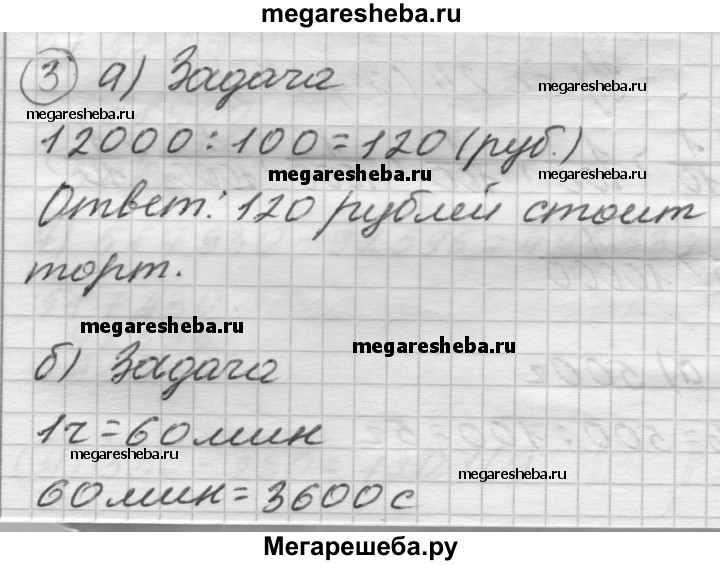 megaresheba.ru
3 а) Задача
megaresheba.ru
megaresheba.ru
12000 : 100 = 120 (руб.)
megaresheba.ru
megaresheba.ru
Ответ: 120 рублей стоит
торт.
megaresheba.ru
megaresheba.ru
б) Задача
1ч = 60 мин
megaresheba.ru
megaresheba.ru
60 мин = 3600 с
Мегарешеба.ру